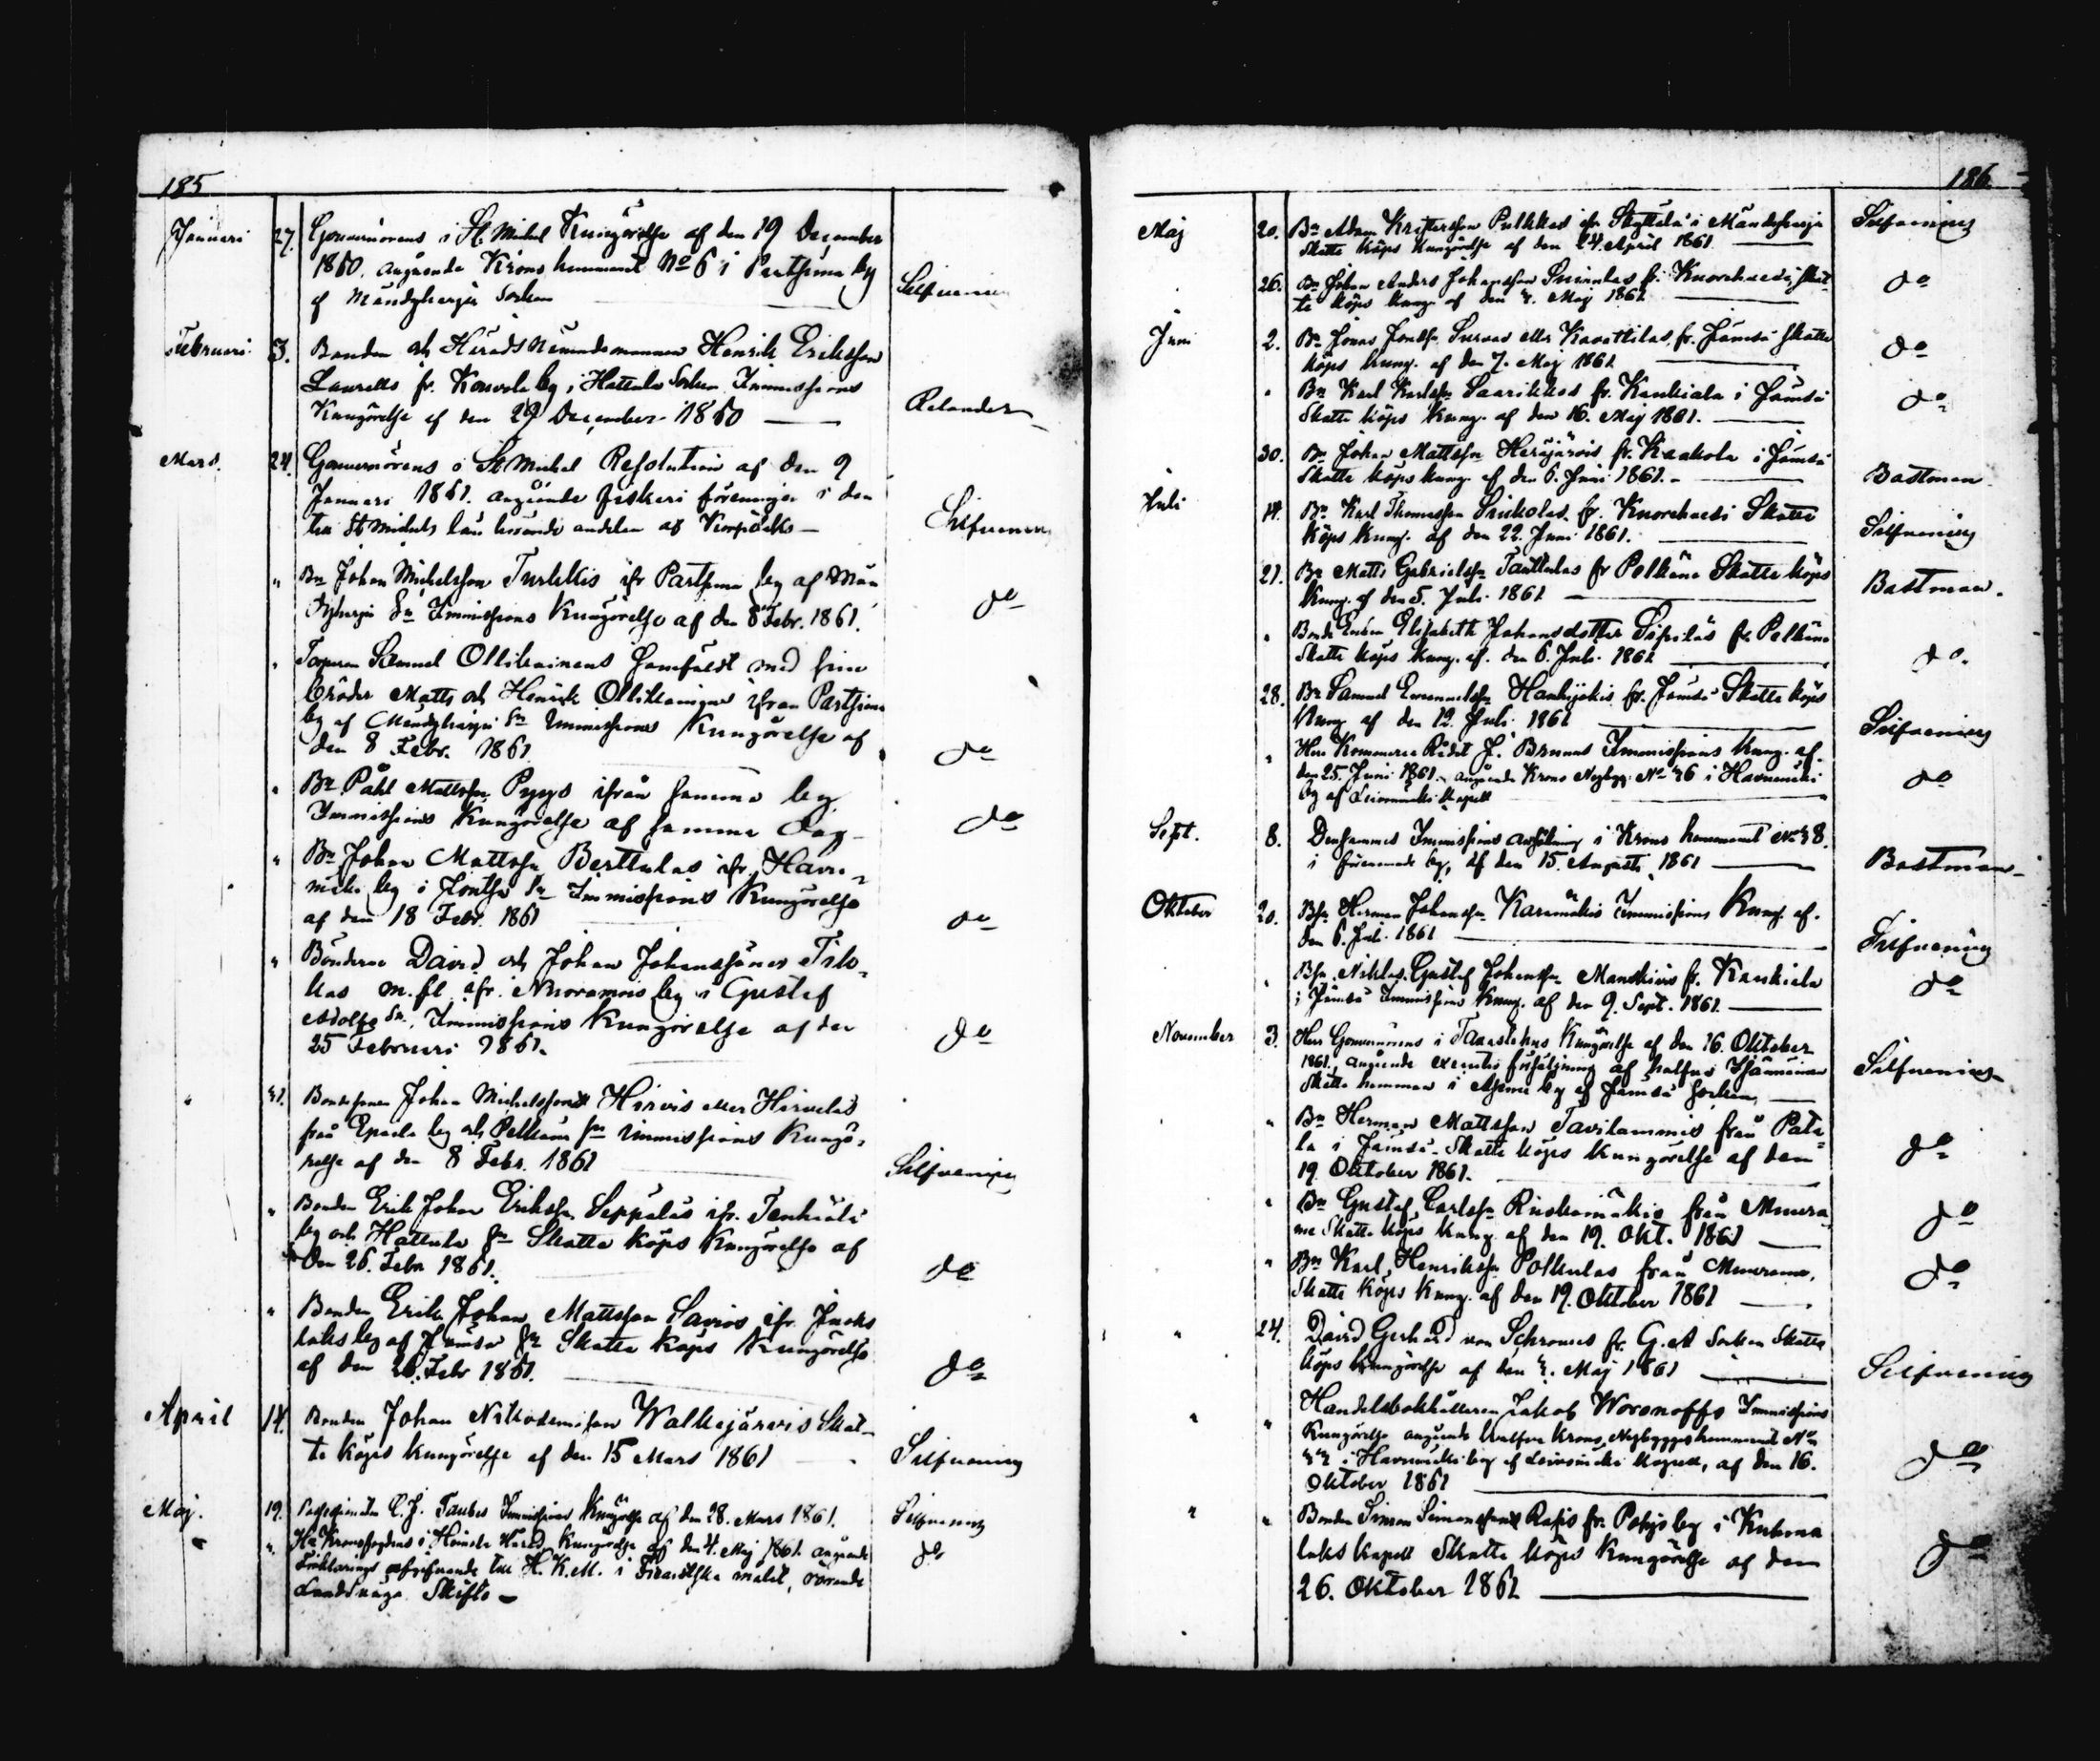 185
Januari 27. Gouvernörens i St. Michel Kungörelse af den 19 December
1860. angående Krono hemmanet No 6 i Partsima by
af Mändyharju Socken Silfvening
Februari 3. Bonden och Härads Nämndemannen Henrik Eriksson
Laurells fr. Konvola by i Hattula Socken Immissions
Kungörelse af den 29 December 1860 Relander
Mars. 24. Gouvernörens i St Michel Resolution af den 9
Januari 1861. angående fiskeri föreningen i den
till St Michels län hörande andelen af
Silfvening
" Bn Johan Michelsson Turkkis ifr Partsima by af Män
dyharju Sn Immissions Kungörelse af den 8 Febr. 1861. do
" Torparen Samuel Ollikainens samfäldt med sine
bröder Matts och Henrik Ollikainen ifrån Partsima
by af Mändyharju Sn Immissions Kungörelse af
den 8 Febr. 1861 do
" Bn Påhl Mattsson Pyys ifrån samma by
Immissions Kungörelse af samma dag do
" Bn Johan Mattsson Berttulas ifr. Havu-
mäki by i Jontsa Sn Immissions Kungörelse
af den 18 Febr. 1861 do
" Bönderne David och Johan Johanssöner
m. fl. ifr. Nuoramois by i Gustaf
Adolfs Sn. Immissions Kungörelse af den
25 Februari 1861. do
" Bondesonen Johan Michelsson Hirvis eller Hirveläs
från Epaala by och Pelkäne Sn Immissions Kungö-
relse af den 8 Febr. 1861 Silfvening
" Bonden Erik Johan Eriksson Seppäläs ifr. Tenhiälä
by och Hattula Sn Skatte köps Kungörelse af
den 26. Febr 1861. do
" Bonden Erik Johan Mattsson Savios ifr. Juoks
lahs by af Jämsä Sn Skatte köps Kungörelse
af den 26. Febr 1861. do
April 14. Bonden Johan Nikodemisson Walkejärvis Skat-
te köps kungörelse af den 15 Mars 1861 Silfvening
Maj. 19. Possessionaten C. J. Taubes Immissions Kungörelse af den 28. Mars 1861. Silfvening
" Hr Kronofogdens i Heinola Härad Kungörelse af den 4. Maj 1861. angående
förklarings afgifvande till H. K. M. i målet, rörande
Skifte do
186
Maj 20. Bn Adam Kristersson Pulkkas ifr Skyttelä i Mändyharju
Skatte köps Kungörelse af den 24. April 1861. Silfvening
26. Bn Johan Anders Johansson fr. Knorehaesi, Skat-
te köps kung. af den 7. Maj 1861 do
Juni 2. Bn Jonas Jonsson eller Kavattilas fr. Jämsä Skatte
köps kung. af den 7. Maj 1861 do
" Bn Karl Karlsson Saarikkos fr. Kaukiala i Jämsä
Skatte köps kung. af den 16. Maj 1861. do
30. Bn Johan Mattsson Herajärvis fr. Kaakola i Jämsä
Skatte köps kung. af den 6. Juni 1861. Bastman
Juli 14. Bn Karl Thomasson fr. Knorehaesi Skatte
köps kung. af den 22. Juni 1861. Silfvening
21. Bn Matts Gabrielsson fr Pelkäne Skatte köps
kung. af den 5. Juli 1861 Bastman.
" Bonde Enkan Elisabeth Johansdotter Sipiläs fr. Pelkäne
Skatte köps kung. af den 6. Juli 1861 do.
28. Bn Samuel Emanuelsson Hankijokis fr. Jämsä Skatte köps
kung. af den 12. Juli 1861 Silfvening
" Herr Kommerse Rådet J. Brunos Immissions kung. af
den 25. Juni 1861. angående Krono Nybygg. No 46 i Havumäki
by af Leivonmäki kapell do
Sept. 8. Densammes Immissions ansökning i Krono hemmanet No 48.
i sammande by, af den 15. Augusti 1861 Bastman
Oktober 20. Bsn Herman Johansson Karamäkis Immissions Kung. af
den 6. Juli 1861 Silfvening
" Bsn. Niklas Gustaf Johansson Manskivis fr. Kaukiala
i Jämsä Immissions Kung. af den 9. Sept. 1861. do
November 3. Herr Gouvernörens i Tavastehus Kungörelse af den 16. Oktober
1861, angående executiv försäljning af halfva
Skatte hemman i by af Jämsä Socken Silfvening
" Bn Herman Mattsson Tavilammis från Pata-
la i Jämsä Skatte köps kungörelse af den
19. Oktober 1861. do
" Bn Gustaf Carlsson Ruskamäkis från Muura
me Skatte köps kung. af den 19. Okt. 1861 do
" Bn Karl Henriksson Polkulas från Muurame,
Skatte köps kung. af den 19. Oktober 1861 do
" 24. David Gerhard von Schroues fr. G. A Socken Skatte
köps kungörelse af den 7. Maj 1861 Silfvening
" " Handelsbokhållaren Jakob Woronoffs Immissions
Kungörelse angående halfva Krono Nybyggeshemmanet No
47 i Havumäki by af Leivonmäki kapell, af den 16.
Oktober 1861 do
" " Bonden Simon Simonsson Rapis fr. Pohjo by i Kuhma
laks kapell Skatte köps kungörelse af den
26. Oktober 1861 do